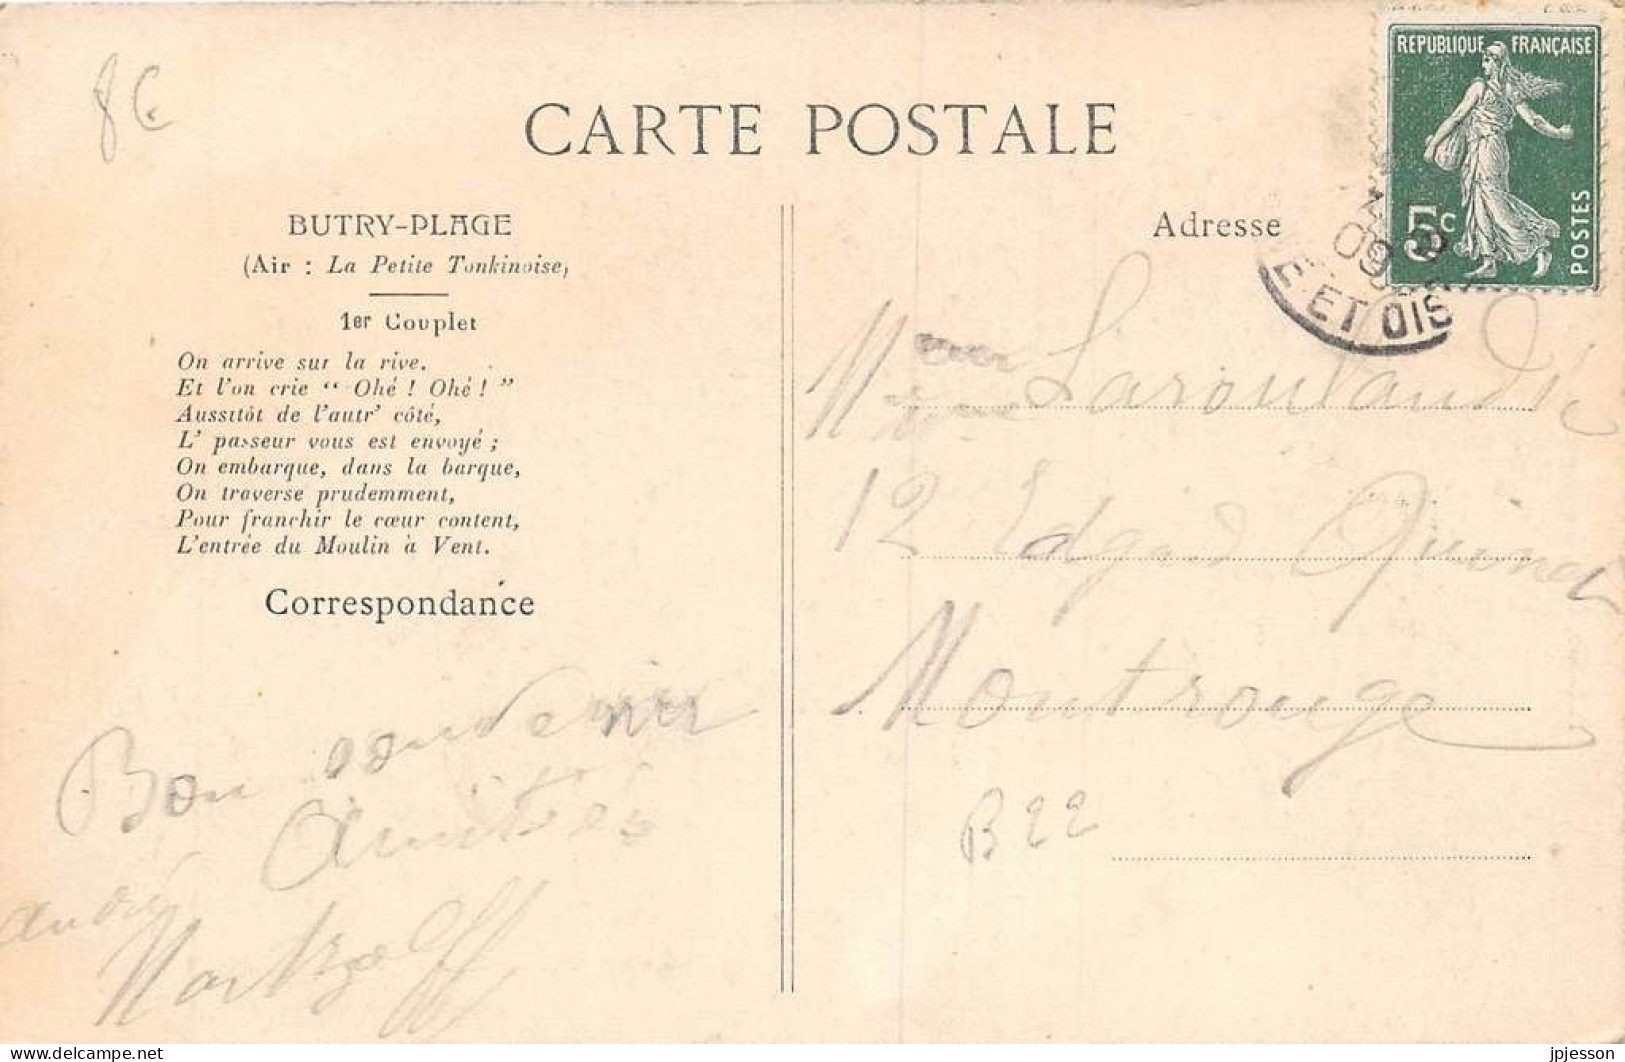 8€
CARTE POSTALE
REPUBLIQUE FRANÇAISE
5c
POSTES
09
E-ET OIS
BUTRY-PLAGE
(Air : La Petite Tonkinoise)
1er Couplet
On arrive sur la rive.
Et l'on crie “ Ohé ! Ohé ! ”
Aussitôt de l'autr' côté,
L' passeur vous est envoyé ;
On embarque, dans la barque,
On traverse prudemment,
Pour franchir le cœur content,
L'entrée du Moulin à Vent.
Correspondance
Bon souvenir
Amitiés
André
Adresse
12 Edgard Quinet
Montrouge
B22
jpjesson